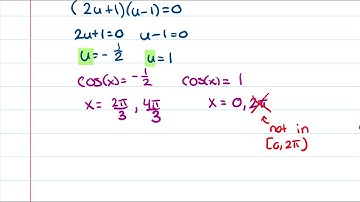 (2u+1)(u-1)=0
2u+1=0 u-1=0
u=-1/2 u=1
cos(x)=-1/2 cos(x)=1
x=2π/3, 4π/3 x=0, 2π
not in
[0,2π)